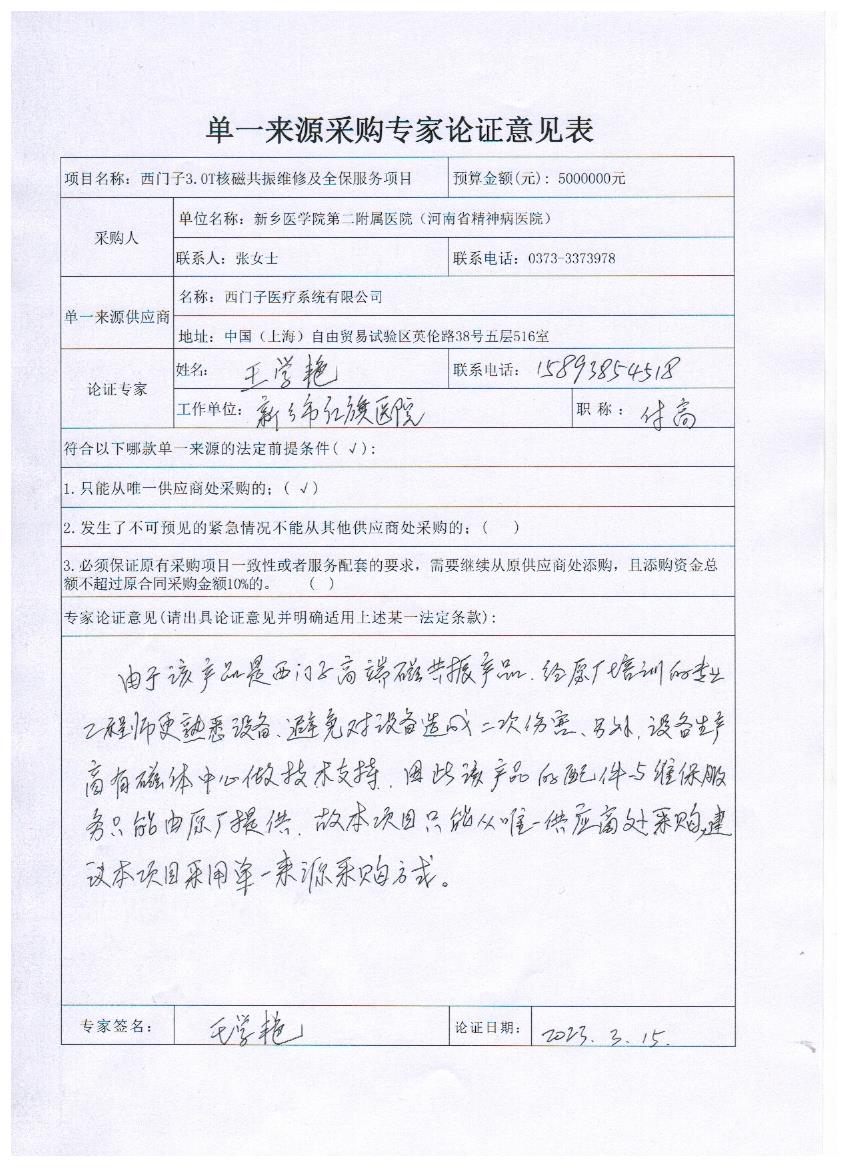 单一来源采购专家论证意见表
项目名称：西门子3.0T核磁共振维修及全保服务项目 预算金额(元)：5000000元
采购人
单位名称：新乡医学院第二附属医院（河南省精神病医院）
联系人：张女士 联系电话：0373-3373978
单一来源供应商
名称：西门子医疗系统有限公司
地址：中国（上海）自由贸易试验区英伦路38号五层516室
论证专家
姓名：王学艳 联系电话：15893854518
工作单位：新乡市红旗医院 职称：付高
符合以下哪款单一来源的法定前提条件(√)：
1.只能从唯一供应商处采购的；(√)
2.发生了不可预见的紧急情况不能从其他供应商处采购的；( )
3.必须保证原有采购项目一致性或者服务配套的要求，需要继续从原供应商处添购，且添购资金总
额不超过原合同采购金额10%的。 ( )
专家论证意见(请出具论证意见并明确适用上述某一法定条款)：
由于该产品是西门子高端磁共振产品、经原厂培训的专业
工程师更熟悉设备、避免对设备造成二次伤害、另外、设备生产
商有磁体中心做技术支持、因此该产品的配件与维保服
务只能由原厂提供、故本项目只能从唯一供应商处采购，建
议本项目采用单一来源采购方式。
专家签名：王学艳 论证日期：2023.3.15.